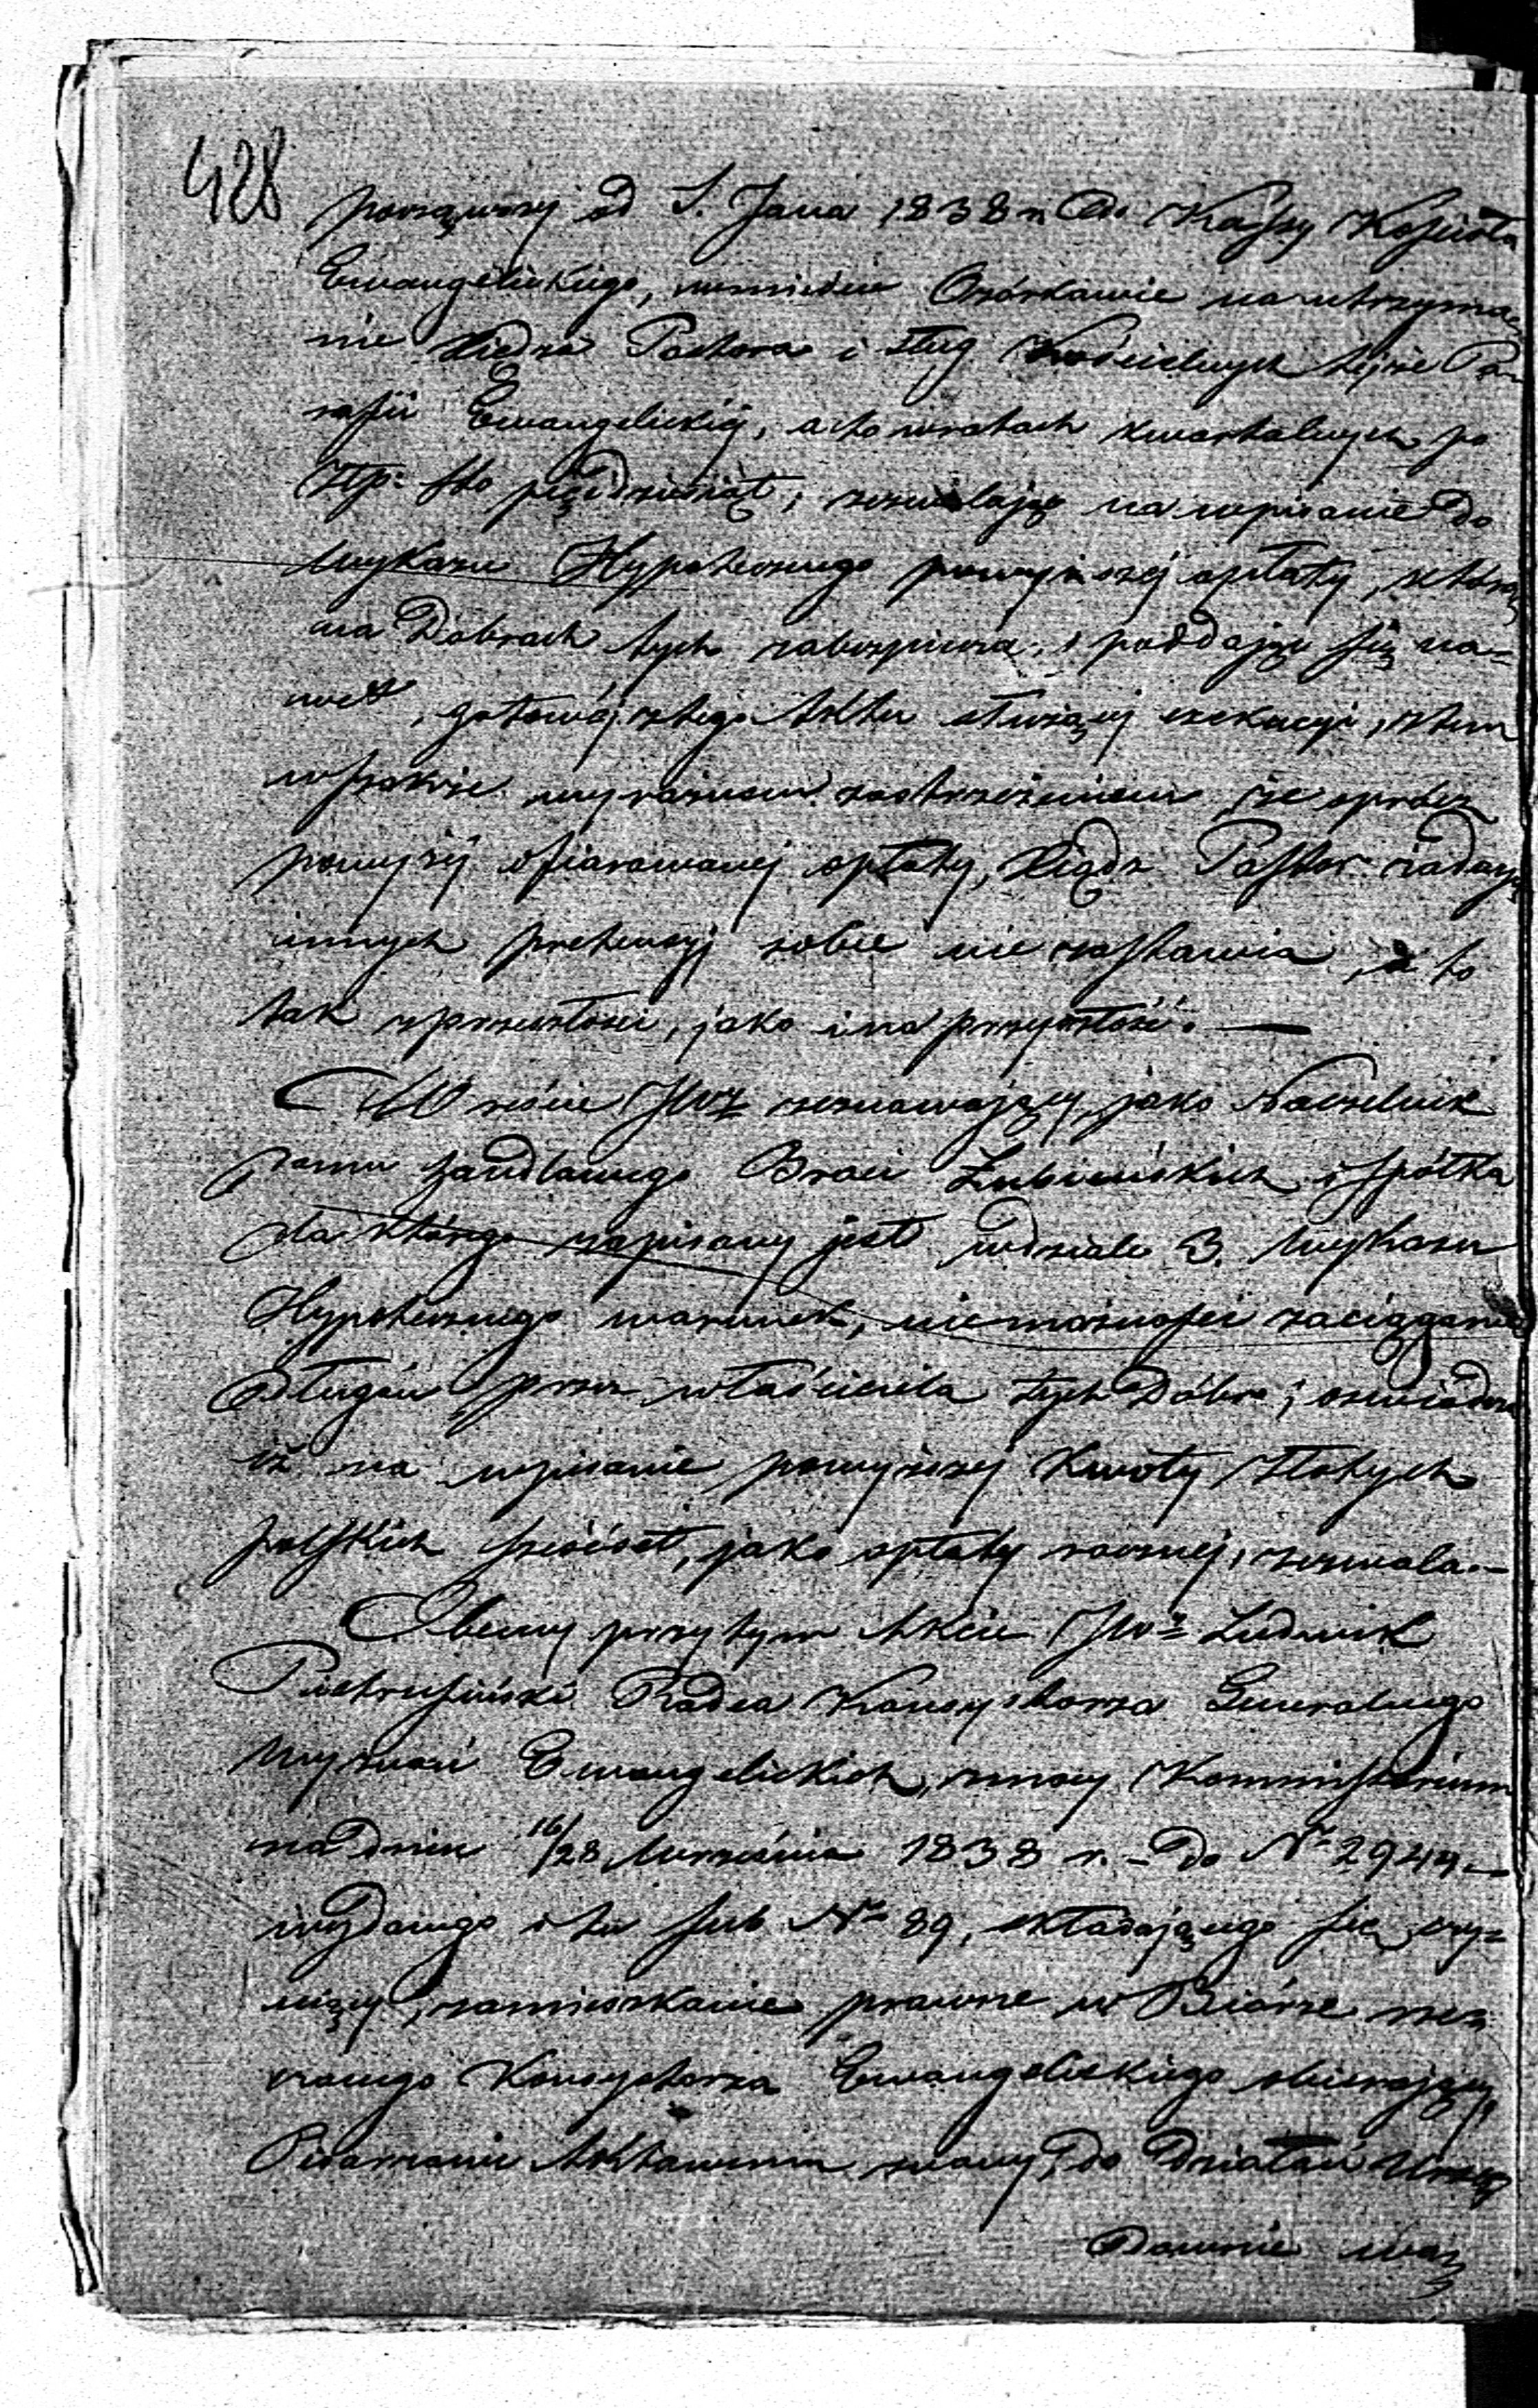 428
począwszy od S. Jana 1838 r. do Kassy Kościoła
Ewangelickiego, w mieście Ozórkowie na utrzyma-
nie Xiędza Pastora i sług Kościelnych tejże Pa-
rafii Ewangelickiéj, a to w ratach kwartalnych po
Złp: sto pięćdziesiąt, zezwalając na wpisanie do
Wykazu Hypotecznego powyższéj opłaty, którą
na Dobrach tych zabezpiecza, i poddając się na-
wet, gotowéj z tego Aktu służącéj exekucyi, z tem
wszakże wyraźnem zastrzeżeniem że oprócz
powyżéj ofiarowanéj opłaty, Xiądz Pastor żadnych
innych pretensyj sobie nie zostawia, a to
tak z przeszłości, jako i na przyszłość. —
W reście JWż zeznawający, jako Naczelnik
domu handlowego Braci Łubieńskich i Spółka
dla którego zapisany jest w dziale 3. Wykazu
Hypotecznego warunek, niemożności zaciągania
długów przez właściciela tych Dóbr; oświadcza
iż na wpisanie powyższéj Kwoty Złotych
polskich sześćset, jako opłaty rocznéj, zezwala. —
Obecny przy tym Akcie JWż Ludwik
Pietrusiński Radca Konsystorza Generalnego
Wyznań Ewangelickich, z mocy Kommissorium
na dniu 16/28 Września 1838 r. - do Nr 2944 -
wydanego i tu sub Nr 89, składającego się, czy-
niący, zamieszkanie prawne w Biórze rze-
czonego Konsystorza Ewangelickiego obierający
Pisarzowi Aktowemu znany, do działań Urzę
downie